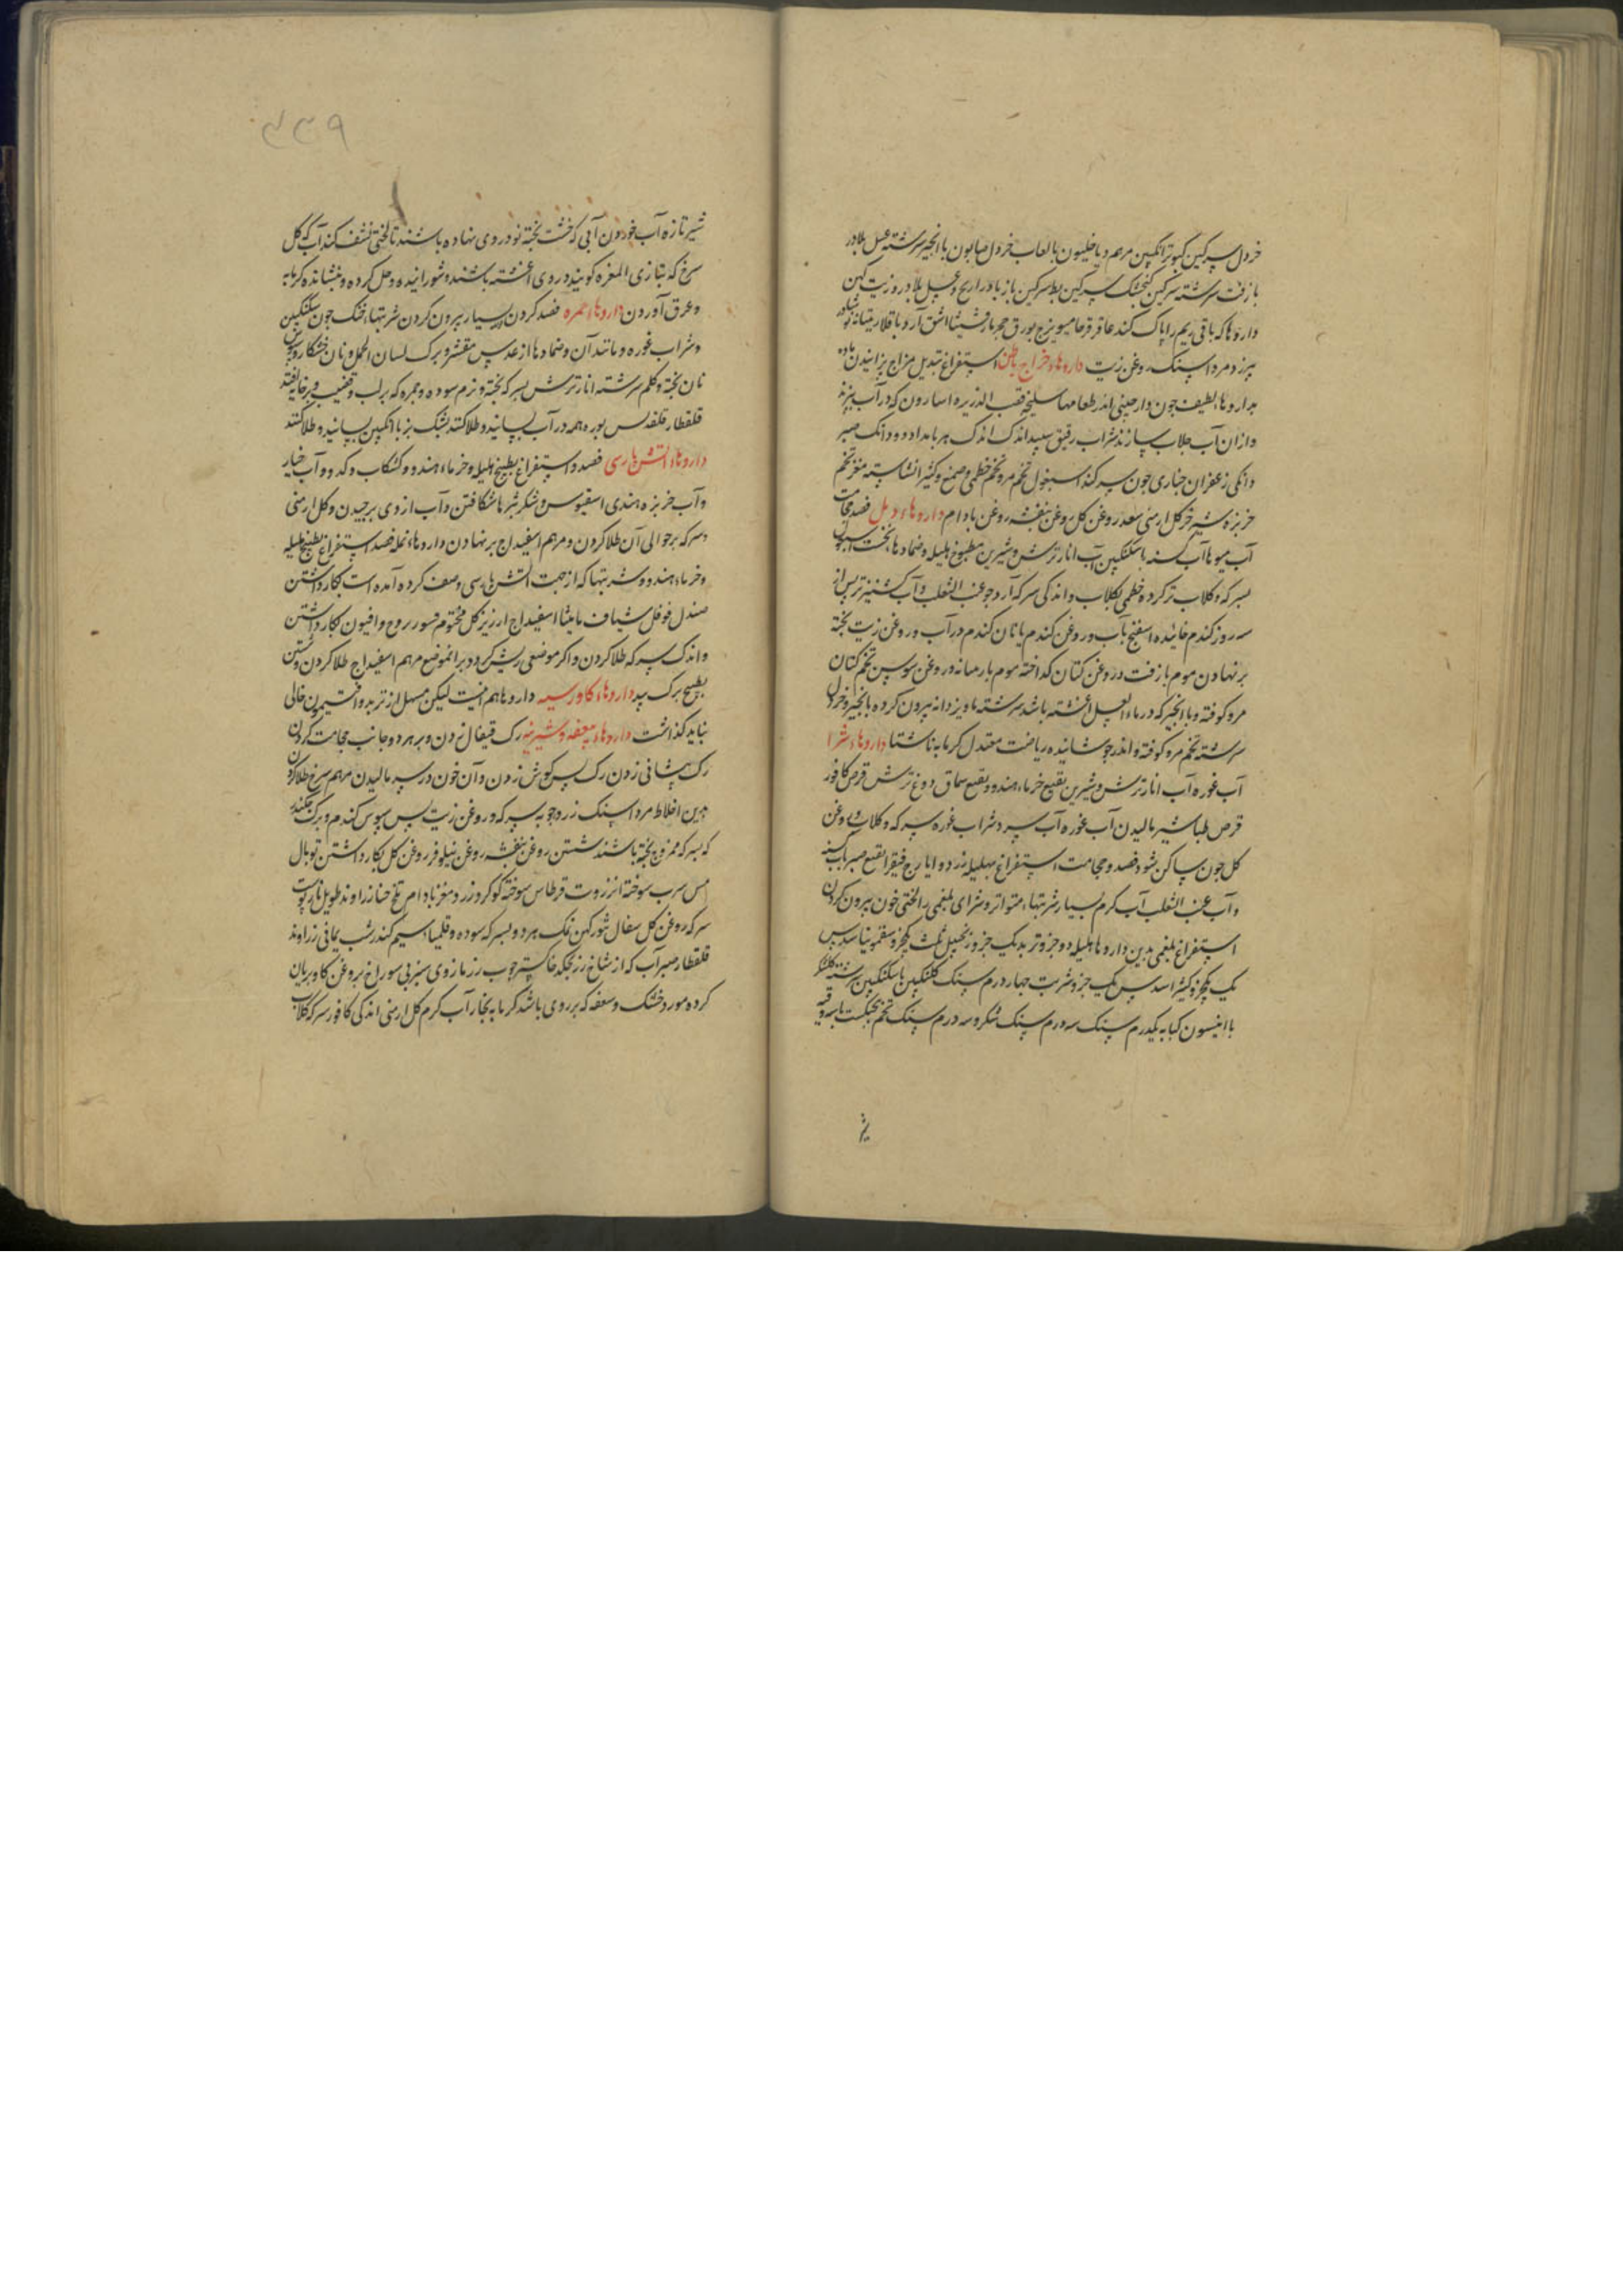 خردل سرکین کبوتر انکبین مرهم دیاخلیون بالعاب خردل صابون با انجیر سرشته عسل بلادر
با زفت سرشته سرکین کنجشک سرکین بط سرکین باز بادراریح و عسل بلادر و زیت کهن
داروها که باقی ریم را پاک کند عاقرقرحا میویزج بورق حجر مارقشیشا اشق آرد باقلا
بپزد مرداسنک روغن زیت داروهاء خراج باطن استفراغ تبدیل مزاج پزانیدن ماده
بداروهاء لطیف جون دارجینی اندر طعامها سلیخه قصب الذریره اسارون که در آب بپزند
و از آن آب جلاب سازند شراب رقیق سپید اندک اندک هر بامداد دو دانک صبر
دانکی زعفران خیاری جون سر کند اسبغول تخم مرو تخم خطمی و صمغ و کثیرا نشاسته مغز تخم
خربزه شیر خر کل ارمنی سعد روغن کل روغن بنفشه روغن بادام داروهاء دمل فصد حجامت
آب میوها آب کسنه باسکنکبین آب انار ترش و شیرین مطبوخ هلیله و ضمادها نخست
بسرکه و کلاب تر کرده خطمی بکلاب و اندکی سرکه آرد جو عنب الثعلب و آب کشنیز تر پس از
سه روز کندم خائیده اسفنج بآب و روغن کندم یا نان کندم در آب و روغن زیت بخته
بر نهادن موم با زفت در روغن کتان کداخته موم بارمیانه و روغن سوسن تخم کتان
مرو کوفته و با انجیر که در ماء العسل اغشته باشد سرشته ماویز دانه بیرون کرده با انجیر و خردل
سرشته تخم مرو کوفته و اندر جوشانیده ریاضت معتدل کرمابه ناشتا داروهاء شرا
آب غوره آب انار ترش و شیرین نقیع خرماء هندو و نقیع سماق دوغ ترش قرص کافور
قرص طباشیر مالیدن آب غوره آب سرد شراب غوره سرکه و کلاب و روغن
کل جون ساکن شود فصد و حجامت استفراغ بهلیله زرد و ایارج فیقرا نقیع صبر بآب کسنه
و آب عنب الثعلب آب کرم بسیار شربتها متواتر و شرای بلغمی را لختی خون بیرون کردن
استفراغ بلغمی بدین داروها هلیله دو جزو تربد یک جزو زنجبیل ثلث یکجزو سقمونیا سدس
یک یکجزو کثیرا سدس یک جزو شربت جهار درم سنک کلنکبین باسکنکبین سرشته
با انیسون کبابه یکدرم سنک سه درم سنک شکر و سه درم سنک تخم بنجنکشت با سه وقیه
شیر
۳۳۹
شیر تازه آب خوردن آبی که خشت بخته نو در وی نهاده باشند تا لختی نشف کند آب که کل
سرخ که بتازی المغره کویند در وی اغشته باشند و شورانیده و حل کرده و بنشانده کرمابه
و عرق آوردن داروهاء حمره فصد کردن بسیار بیرون کردن شربتهاء خنک جون سکنکبین
و شراب غوره و مانند آن و ضمادها از عدس مقشر و برک لسان الحمل و نان خشکار و
نان بخته و کلم سرشته انار ترش بسرکه بخته و نرم سوده و جمره که بر لب و قضیب و بر خایه افتد
قلقطار قلقدیس بوره همه در آب بسایند و طلا کنند بشک بز با انکبین بسایند و طلا کنند
داروهاء آتش پارسی فصد و استفراغ بطبیخ هلیله و خرماء هندو و کشکاب و کدو و آب خیار
و آب خربزه هندی اسفیوس و شکر بثرها شکافتن و آب از وی برجیدن و کل ارمنی
و سرکه بر حوالی آن طلا کردن و مرهم اسفیداج بر نهادن داروهاء نمله فصد استفراغ بطبیخ هلیله
و خرماء هندو و شربتها که از جهت آتش پارسی وصف کرده آمده است بکار داشتن
صندل فوفل شیاف مامیثا اسفیداج ارزیز کل مختوم قشور یبروح و افیون بکار داشتن
و اندک سرکه طلا کردن و اکر موضعی ریش کردد بر آن موضع مرهم اسفیداج طلا کردن و شستن
بطبیخ برک بید داروهاء کاورسیه داروها هم انیست لیکن مسهل از تربد و افتیمون خالی
نباید کذاشت داروهاء سعفه و شیرینه رک قیفال زدن و بر هر دو جانب حجامت کردن
رک پیشانی زدن رک پس کوش زدن و آن خون در سر مالیدن مرهم سرخ طلا کردن
بدین اخلاط مرداسنک زردجوبه سرکه و روغن زیت پس سبوس کندم و برک جکندر
که بسرکه ممزوج بخته باشند شستن روغن بنفشه روغن نیلوفر روغن کل بکار داشتن توبال
مس سرب سوخته انزروت قرطاس سوخته کوکرد زرد مغز بادام تلخ حنا زراوند طویل نار پوست
سرکه روغن کل سفال تنور کهن نمک هر دو بسرکه سوده و قلیمیاء سیم کندر شب یمانی زراوند
قلقطار صبر آب که از شاخ رز بجکد خاکستر جوب رز مازوی سبز بی سوراخ بروغن کاو بریان
کرده مورد خشک و سعفه که بر روی باشد کرمابه بخار آب کرم کل ارمنی اندکی کافور سرکه کلاب